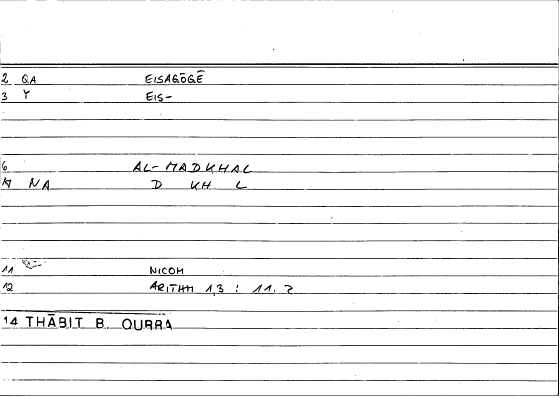 2 QA EISAGŌGĒ
3 Y EIS-
6 AL-MADKHAL
NA D KH L
11 NICOM
12 ARITHM 1,3 : 11. 2
14 THĀBIT B. QURRA